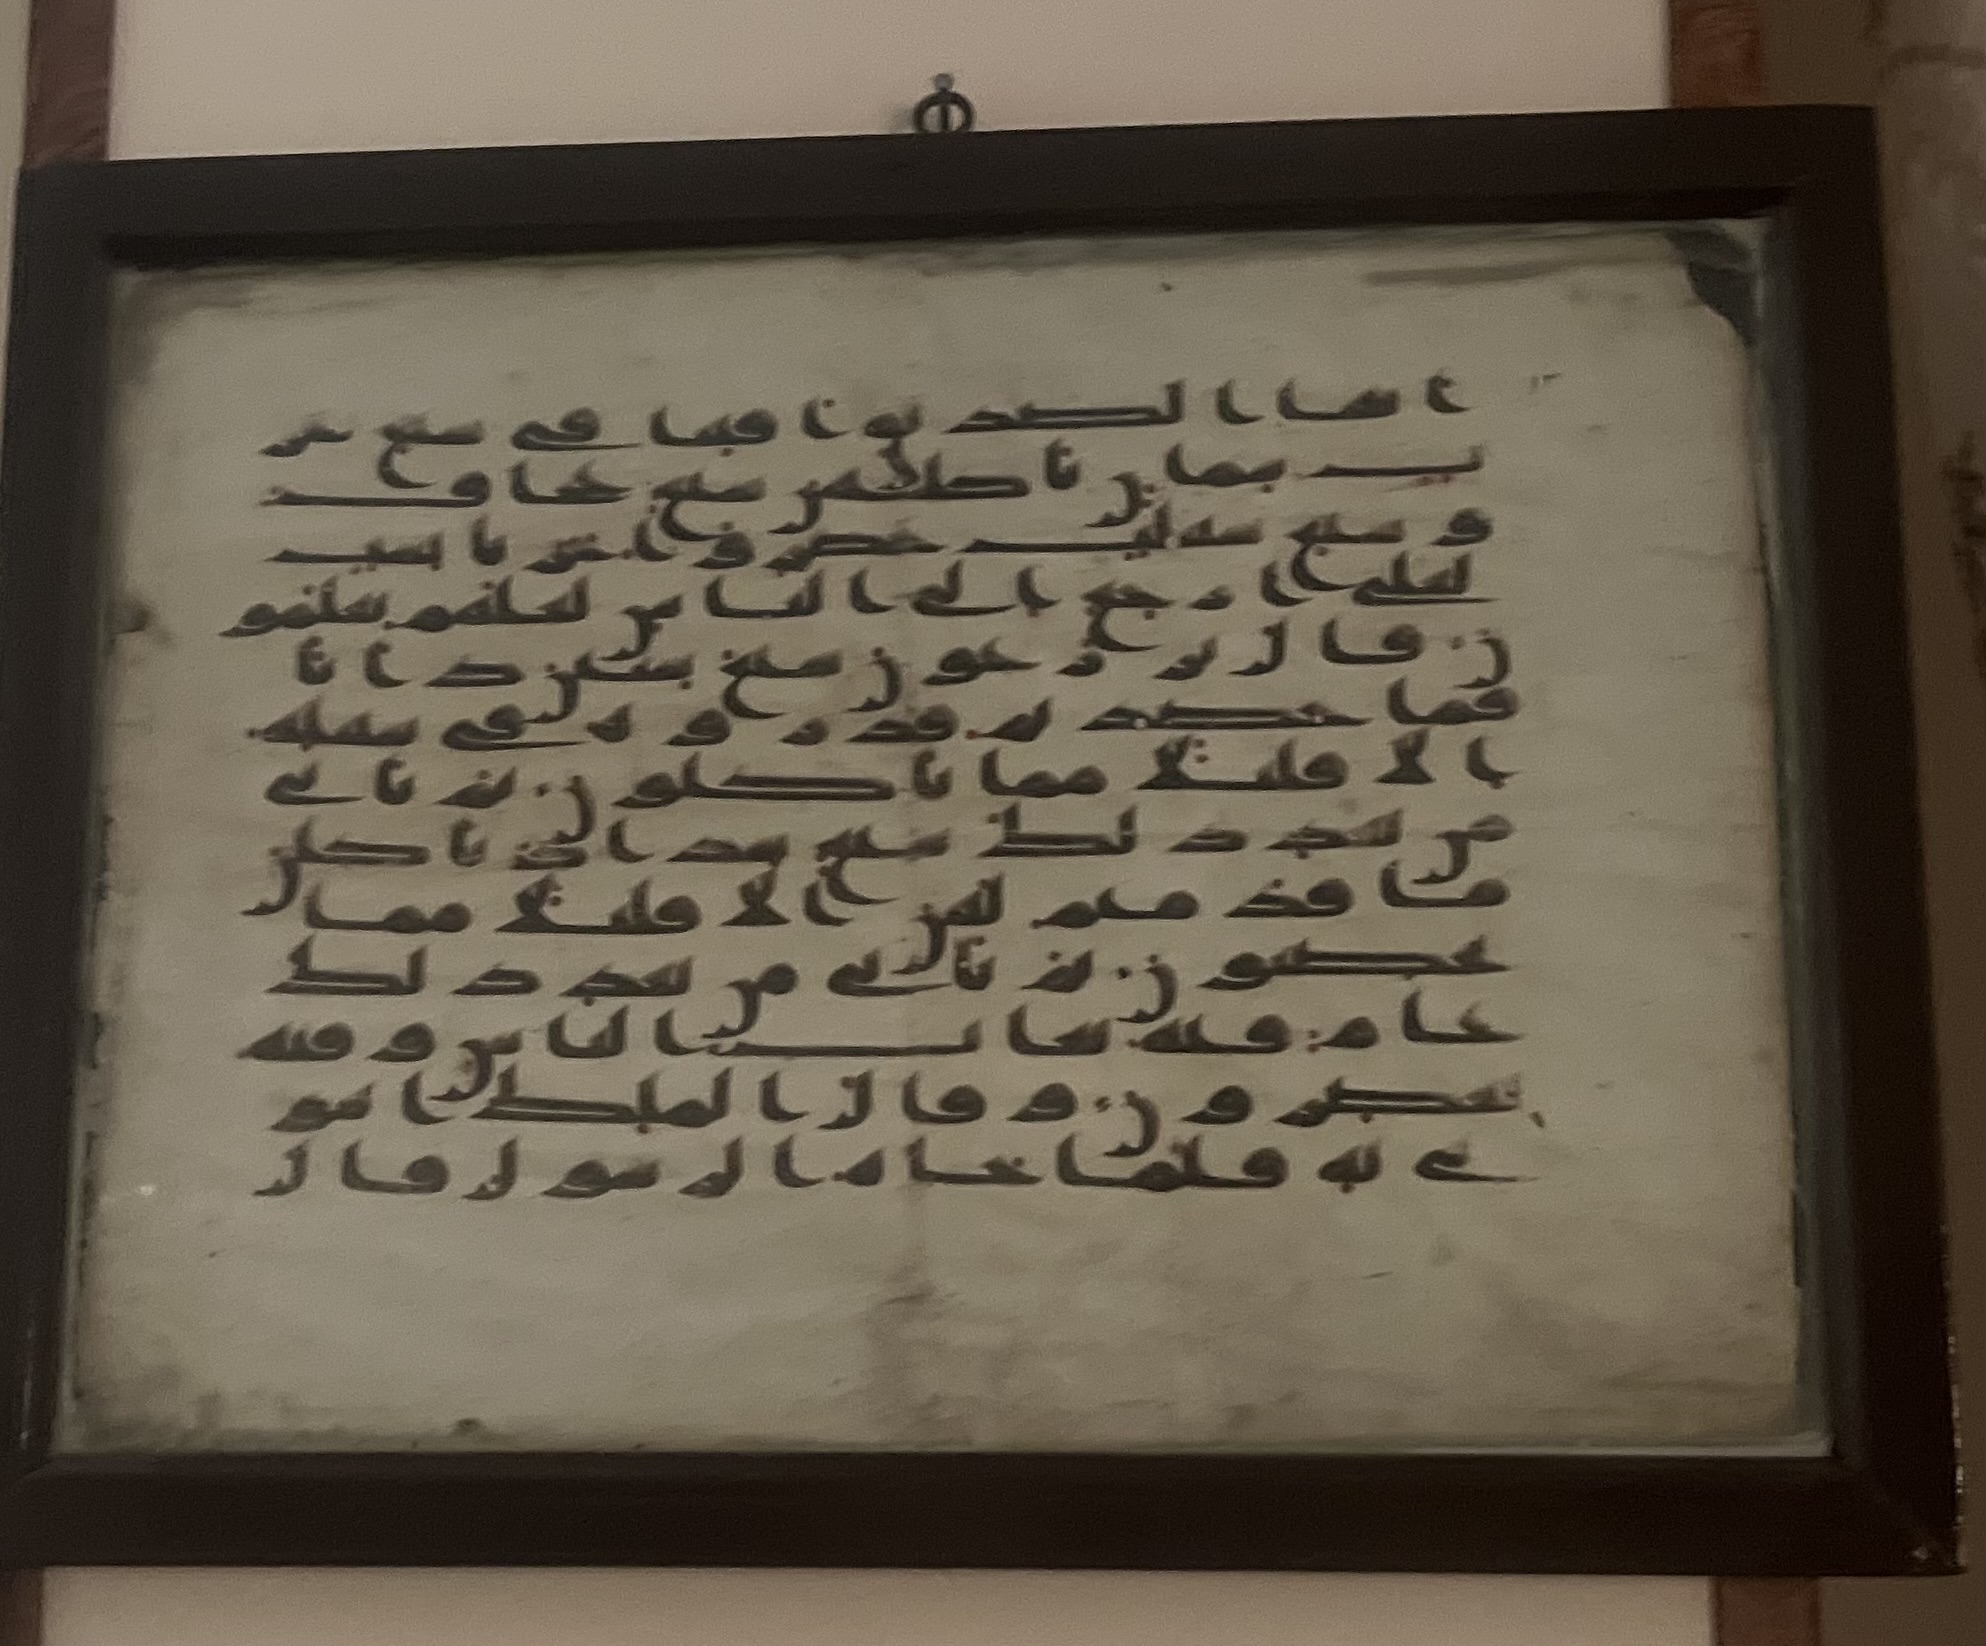 ايها الصديق افتنا في سبع بقر
ت سمان ياكلهن سبع عجاف
وسبع سنبلت خضر واخر يابست
لعلي ارجع الى الناس لعلهم يعلمو
ن قال تزرعون سبع سنين دابا
فما حصدتم فذروه في سنبله
الا قليلا مما تاكلون ثم ياتي
من بعد ذلك سبع شداد ياكلن
ما قدمتم لهن الا قليلا مما
تحصنون ثم ياتي من بعد ذلك
عام فيه يغاث الناس وفيه
يعصرون وقال الملك ائتو
ني به فلما جاه الرسول قال